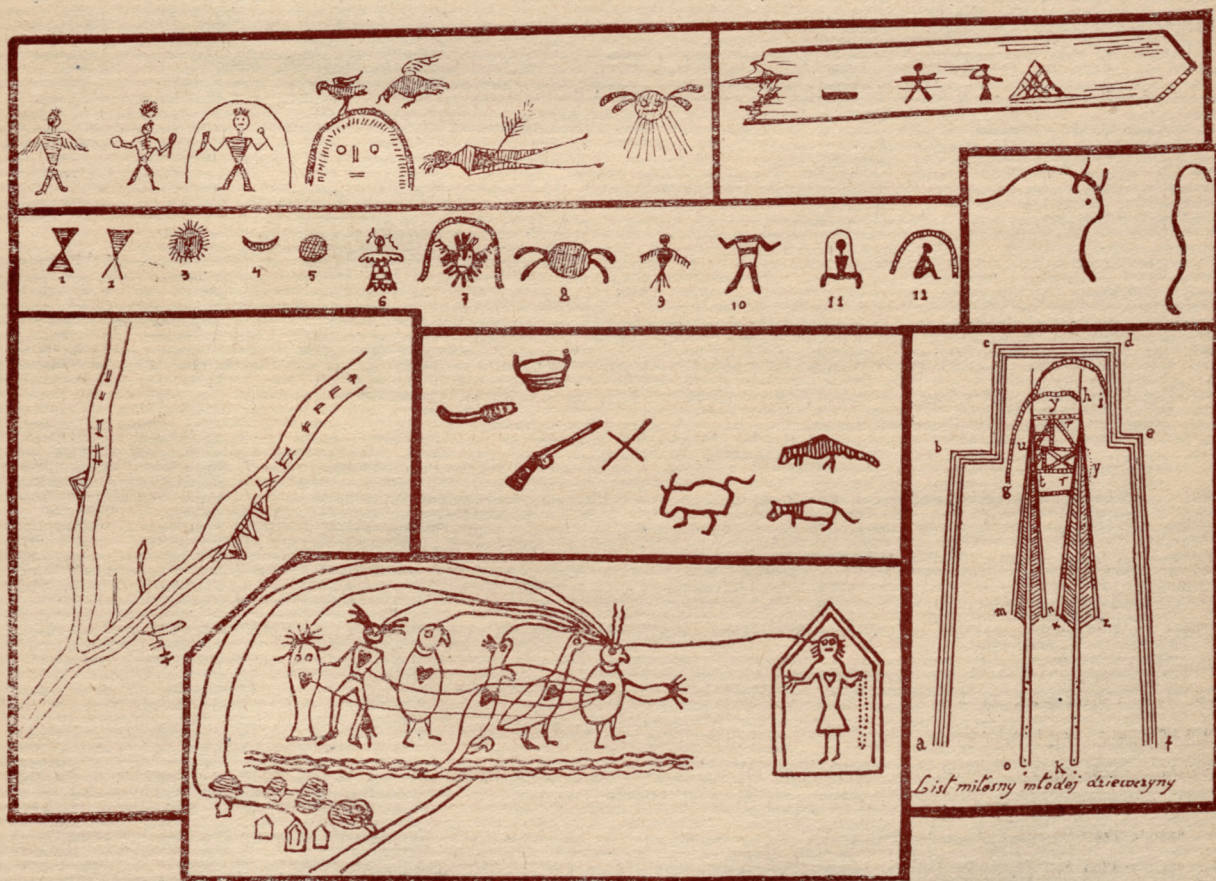 1 2 3 4 5 6 7 8 9 10 11 12
c d
y h i
b u r e
g t r y
m n x z
a f
o k
List miłosny młodej dziewczyny